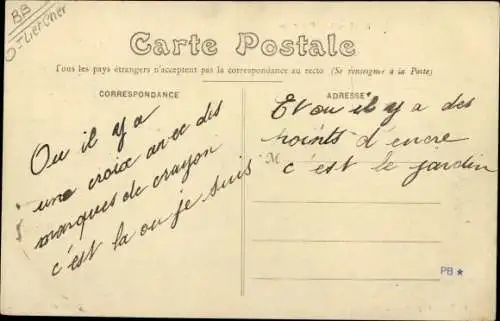 BB
O-LierCher
Carte Postale
Tous les pays étrangers n'acceptent pas la correspondance au recto (Se renseigner à la Poste)
CORRESPONDANCE
Ou il y a
une croix avec des
marques de crayon
c'est la ou je suis
ADRESSE
Et ou il y a des
points d'encre
M
c'est le jardin
PB ★